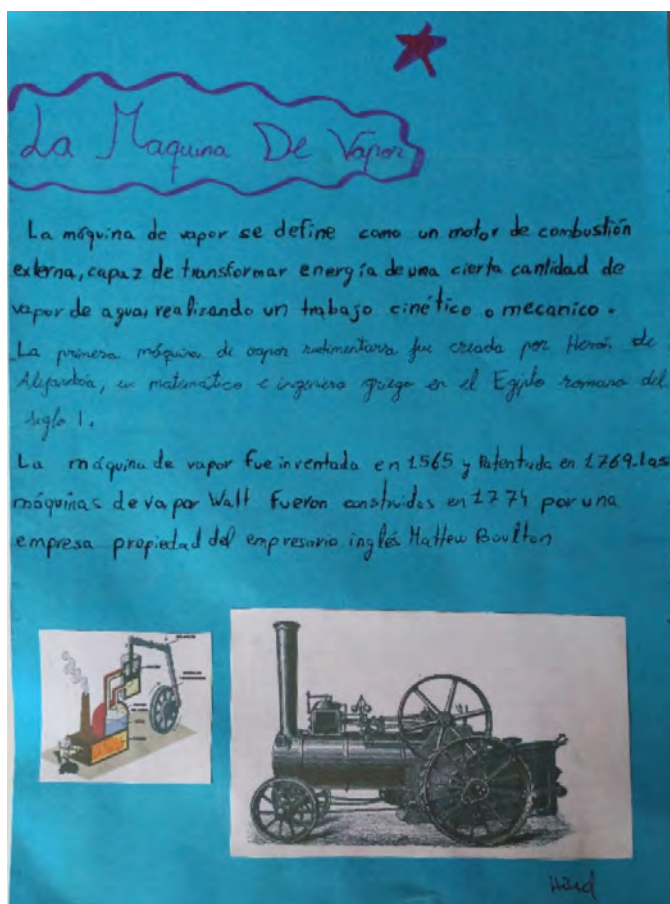 La Maquina De Vapor
La máquina de vapor se define como un motor de combustión
externa, capaz de transformar energía de una cierta cantidad de
vapor de agua, realizando un trabajo cinético o mecanico.
La primera máquina de vapor rudimentaria fue creada por Herón de
Alejandría, un matemático e ingeniero griego en el Egipto romano del
siglo 1.
La máquina de vapor fue inventada en 1565 y Patentada en 1769. las
máquinas de vapor Watt Fueron construidas en 1774 por una
empresa propiedad del empresario inglés Mattew Boulton